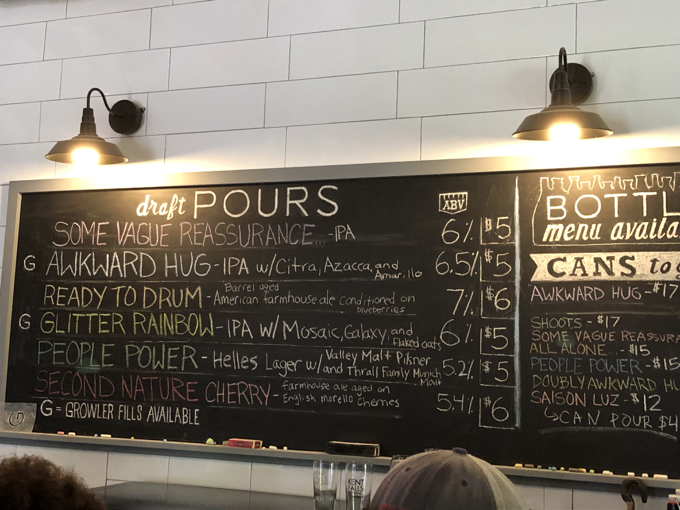 draft POURS
ABV
SOME VAGUE REASSURANCE... -IPA 6% $5
G AWKWARD HUG - IPA w/Citra, Azacca, and Amarillo 6.5% $5
READY TO DRUM - Barrel aged American farmhouse ale conditioned on blueberries 7% $6
G GLITTER RAINBOW - IPA w/ Mosaic, Galaxy, and Flaked oats 6% $5
PEOPLE POWER - Helles Lager w/ Valley Malt Pilsner and Thrall Family Munich Malt 5.2% $5
SECOND NATURE CHERRY - farmhouse ale aged on English morello cherries 5.4% $6
G = GROWLER FILLS AVAILABLE
BOTTL
menu availa
CANS to
AWKWARD HUG - $17
SHOOTS - $17
SOME VAGUE REASSURA
ALL ALONE... - $15
PEOPLE POWER - $15
DOUBLY AWKWARD HU
SAISON LUZ - $12
↳CAN POUR $4
KENT
FALLS